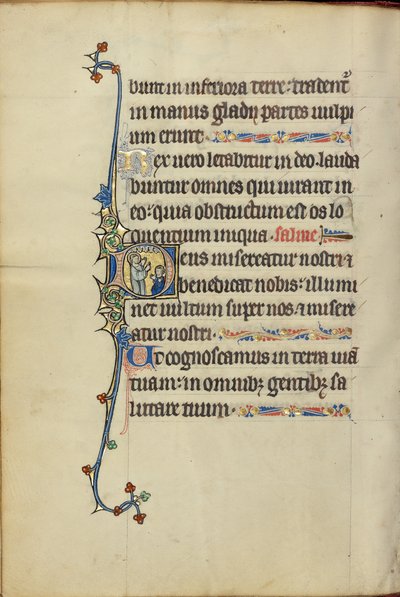 bunt in inferiora terre: tradent᷑
in manus gladij partes uulpi
um erunt.
Rex uero letabitur in deo. lauda
buntur omnes qui iurant in
eo: quia obstructum est os lo
quentium iniqua. salme
Deus misereatur nostri ⁊
benedicat nobis: illumi
net uultum super nos. ⁊ misere
atur nostri.
Ut cognoscamus in terra uiā
tuam: in omnibꝫ gentibꝫ sa
lutare tuum.